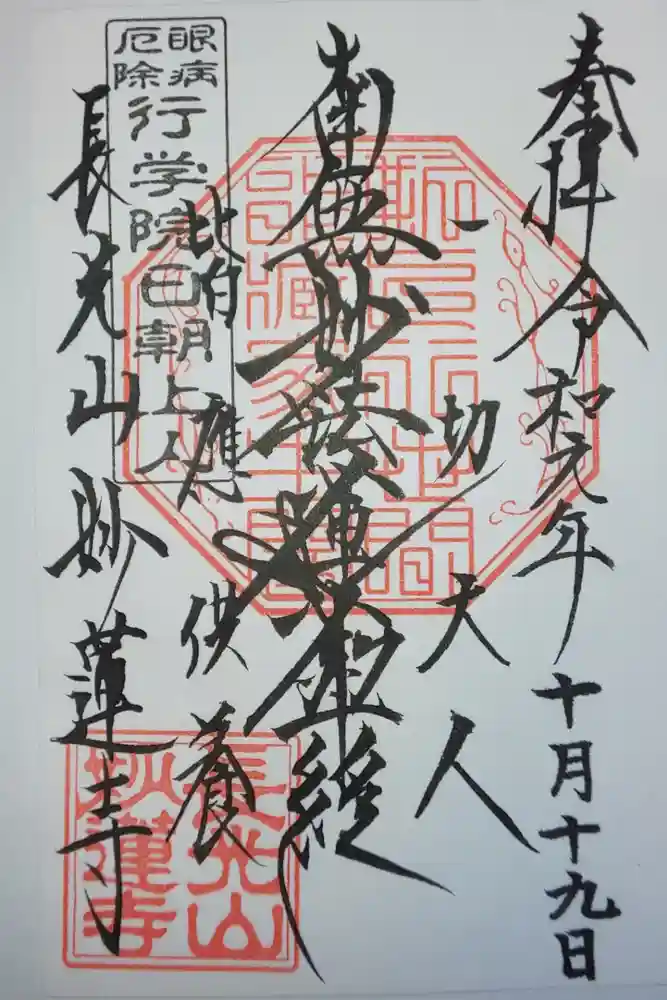 奉拝 令和元年十月十九日
一切天人
南無妙法蓮華経
皆應供養
長光山妙蓮寺
眼病
厄除
行学院日朝上人
長光山
妙蓮寺